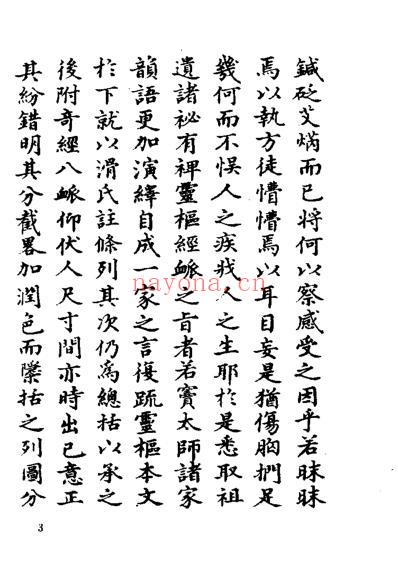 鍼砭艾焫而已將何以察感受之因乎若昧昧
焉以執方徒懵懵焉以耳目妄是猶傷胸捫足
幾何而不悞人之疾戕人之生耶於是悉取祖
遺諸祕有裨靈樞經脈之旨者若竇太師諸家
韻語更加演繹自成一家之言復疏靈樞本文
於下就以滑氏註條列其次仍為總括以承之
後附奇經八脈仰伏人尺寸間亦時出己意正
其紛錯明其分截畧加潤色而櫽括之列圖分
nayona.cn
3